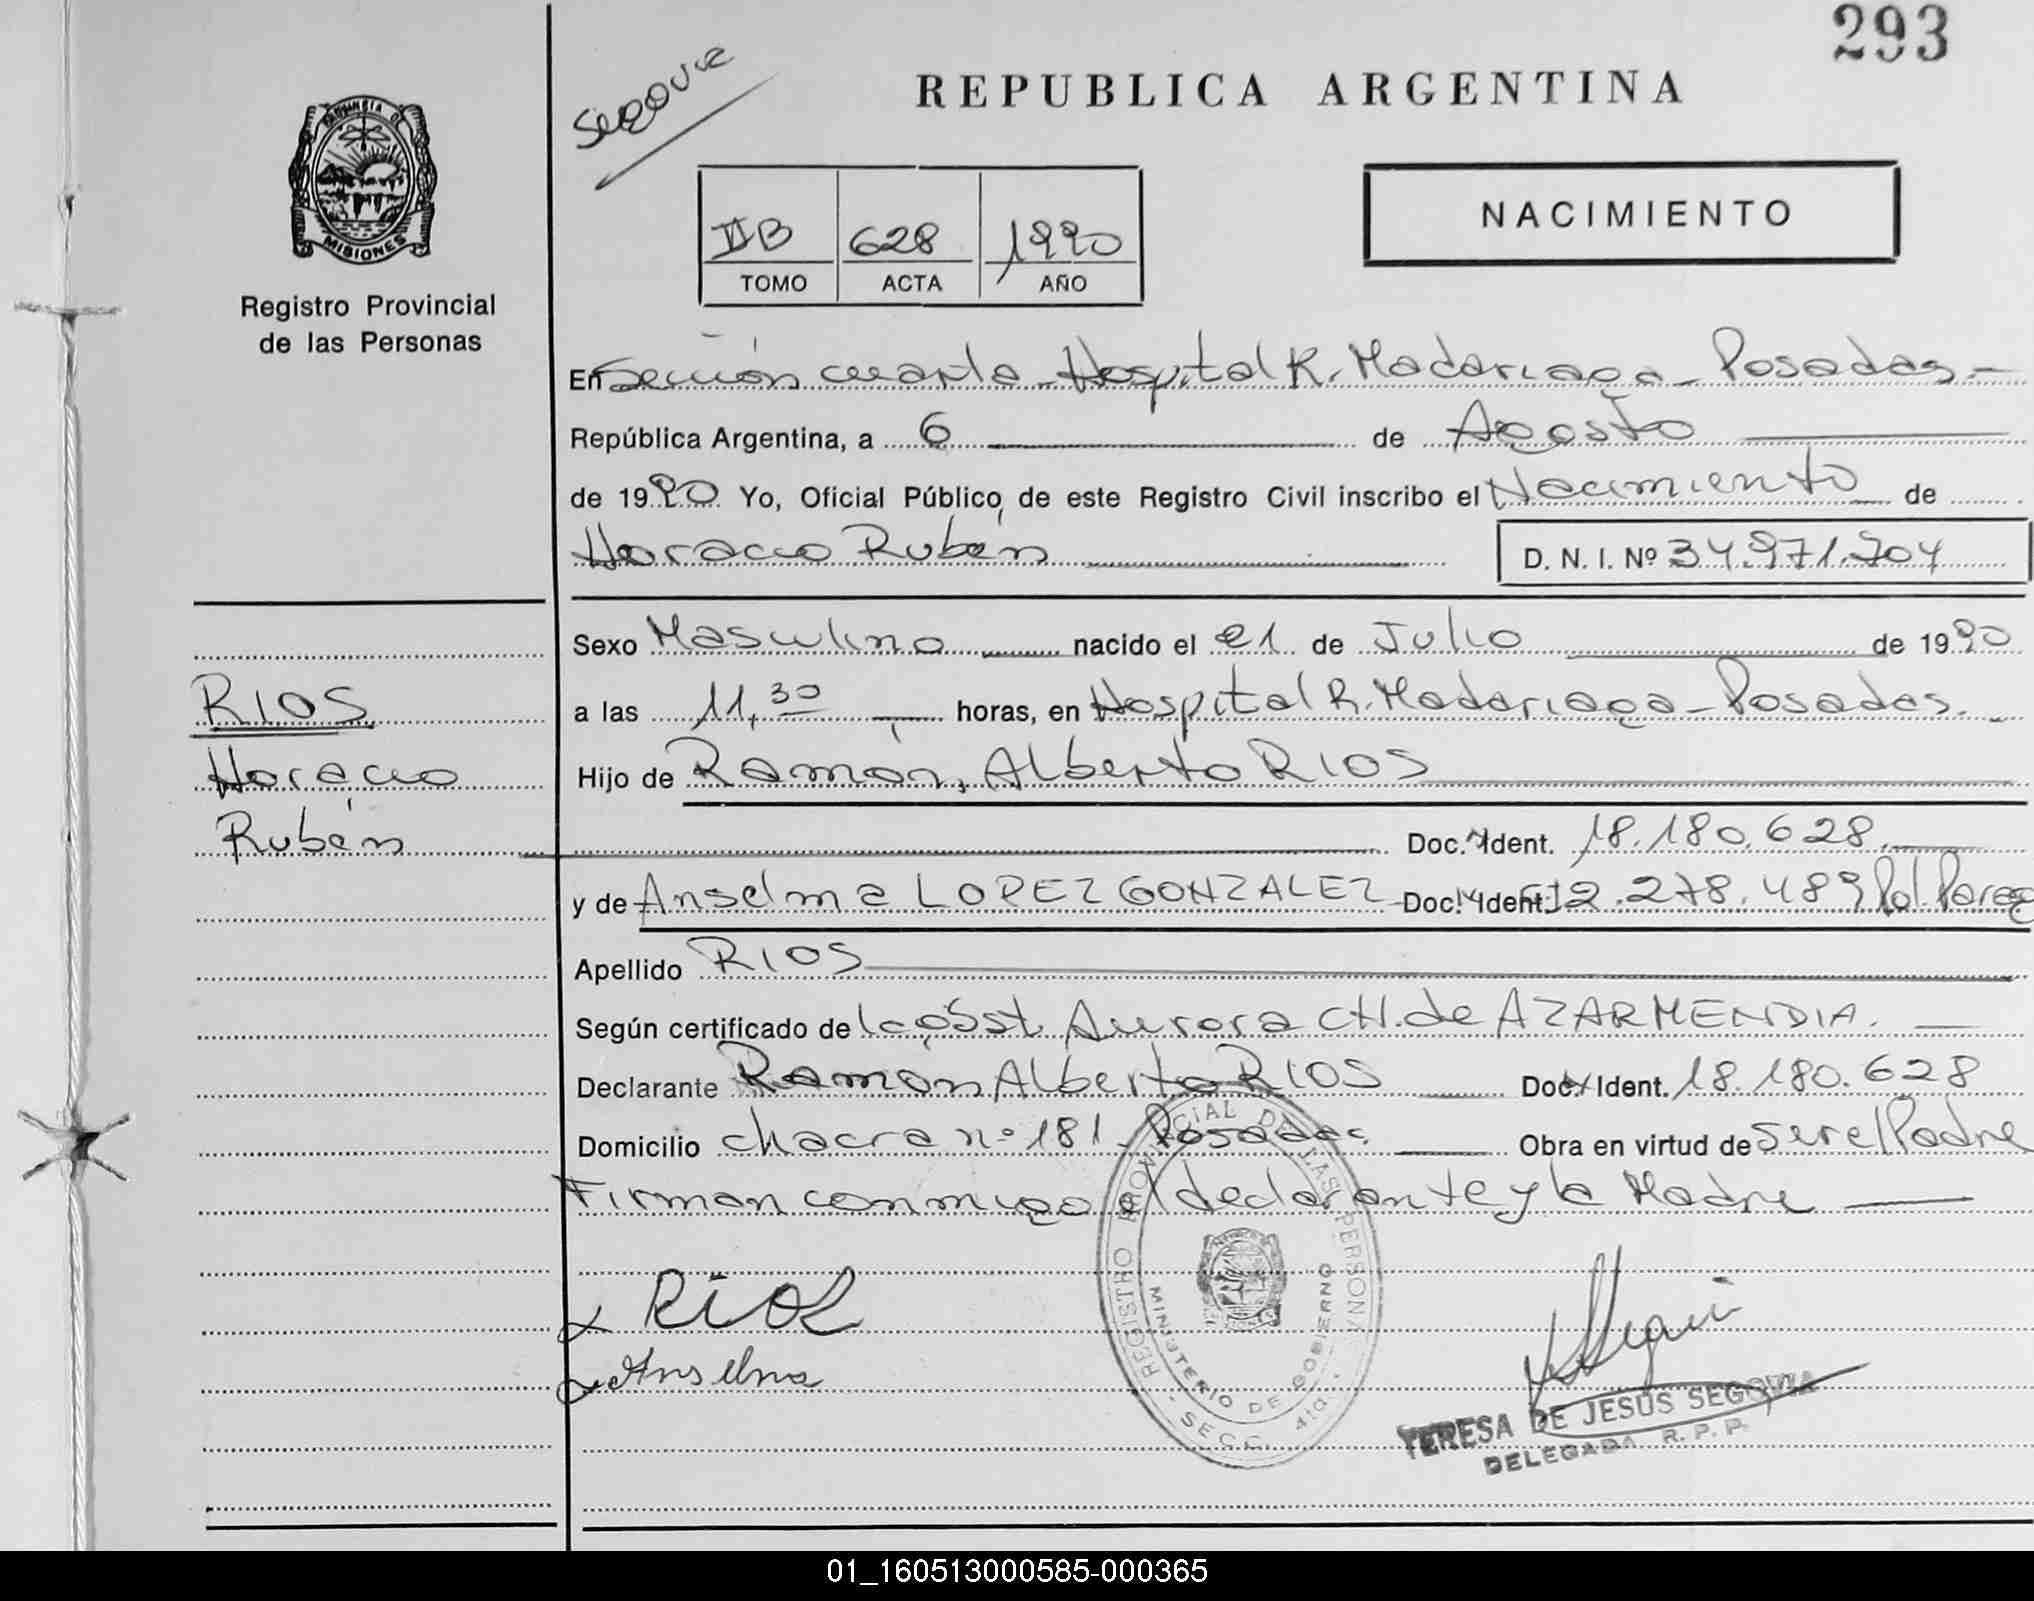 293
Segovia
REPUBLICA ARGENTINA
PROVINCIA DE
MISIONES
Registro Provincial
de las Personas
NACIMIENTO
IIB 628 1990
TOMO ACTA AÑO
En Sección cuarta - Hospital R. Madariaga - Posadas -
República Argentina, a 6 de Agosto
de 1990 Yo, Oficial Público de este Registro Civil inscribo el Nacimiento de
Horacio Rubén D. N. I. Nº 34.971.704
Sexo Masculino nacido el 21 de Julio de 1990
RIOS
a las 11,30 horas, en Hospital R. Madariaga - Posadas. -
Horacio
Hijo de Ramón, Alberto RIOS
Rubén
Doc. Ident. 18.180.628
y de Anselma LOPEZ GONZALEZ Doc. Ident. 2.278.489 Pol. Parag
Apellido RIOS
Según certificado de la Obst. Aurora CH. de AZARMENDIA.
Declarante Ramón Alberto RIOS Doc. Ident. 18.180.628
Domicilio chacra nº 181 - Posadas Obra en virtud de ser el Padre
Firman conmigo el declarante y la Madre
REGISTRO PROVINCIAL DE LAS PERSONAS
MINISTERIO DE GOBIERNO
- SECC. 4ta. -
x Rios
x Anselma
TERESA DE JESUS SEGOVIA
DELEGADA R. P. P.
01_160513000585-000365